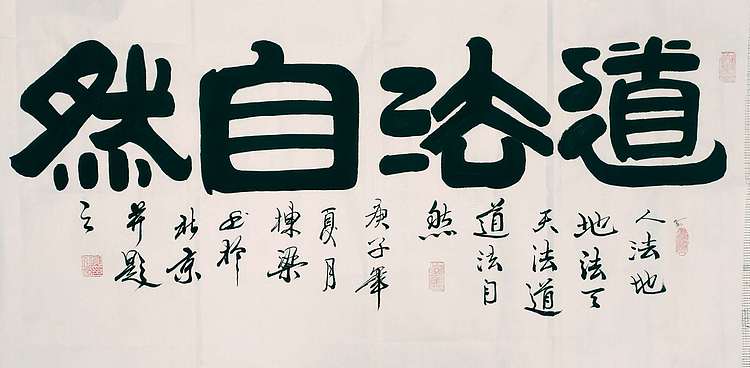 道法自然
人法地
地法天
天法道
道法自
然
庚子年
夏月
栋梁
书于
北京
并题
之